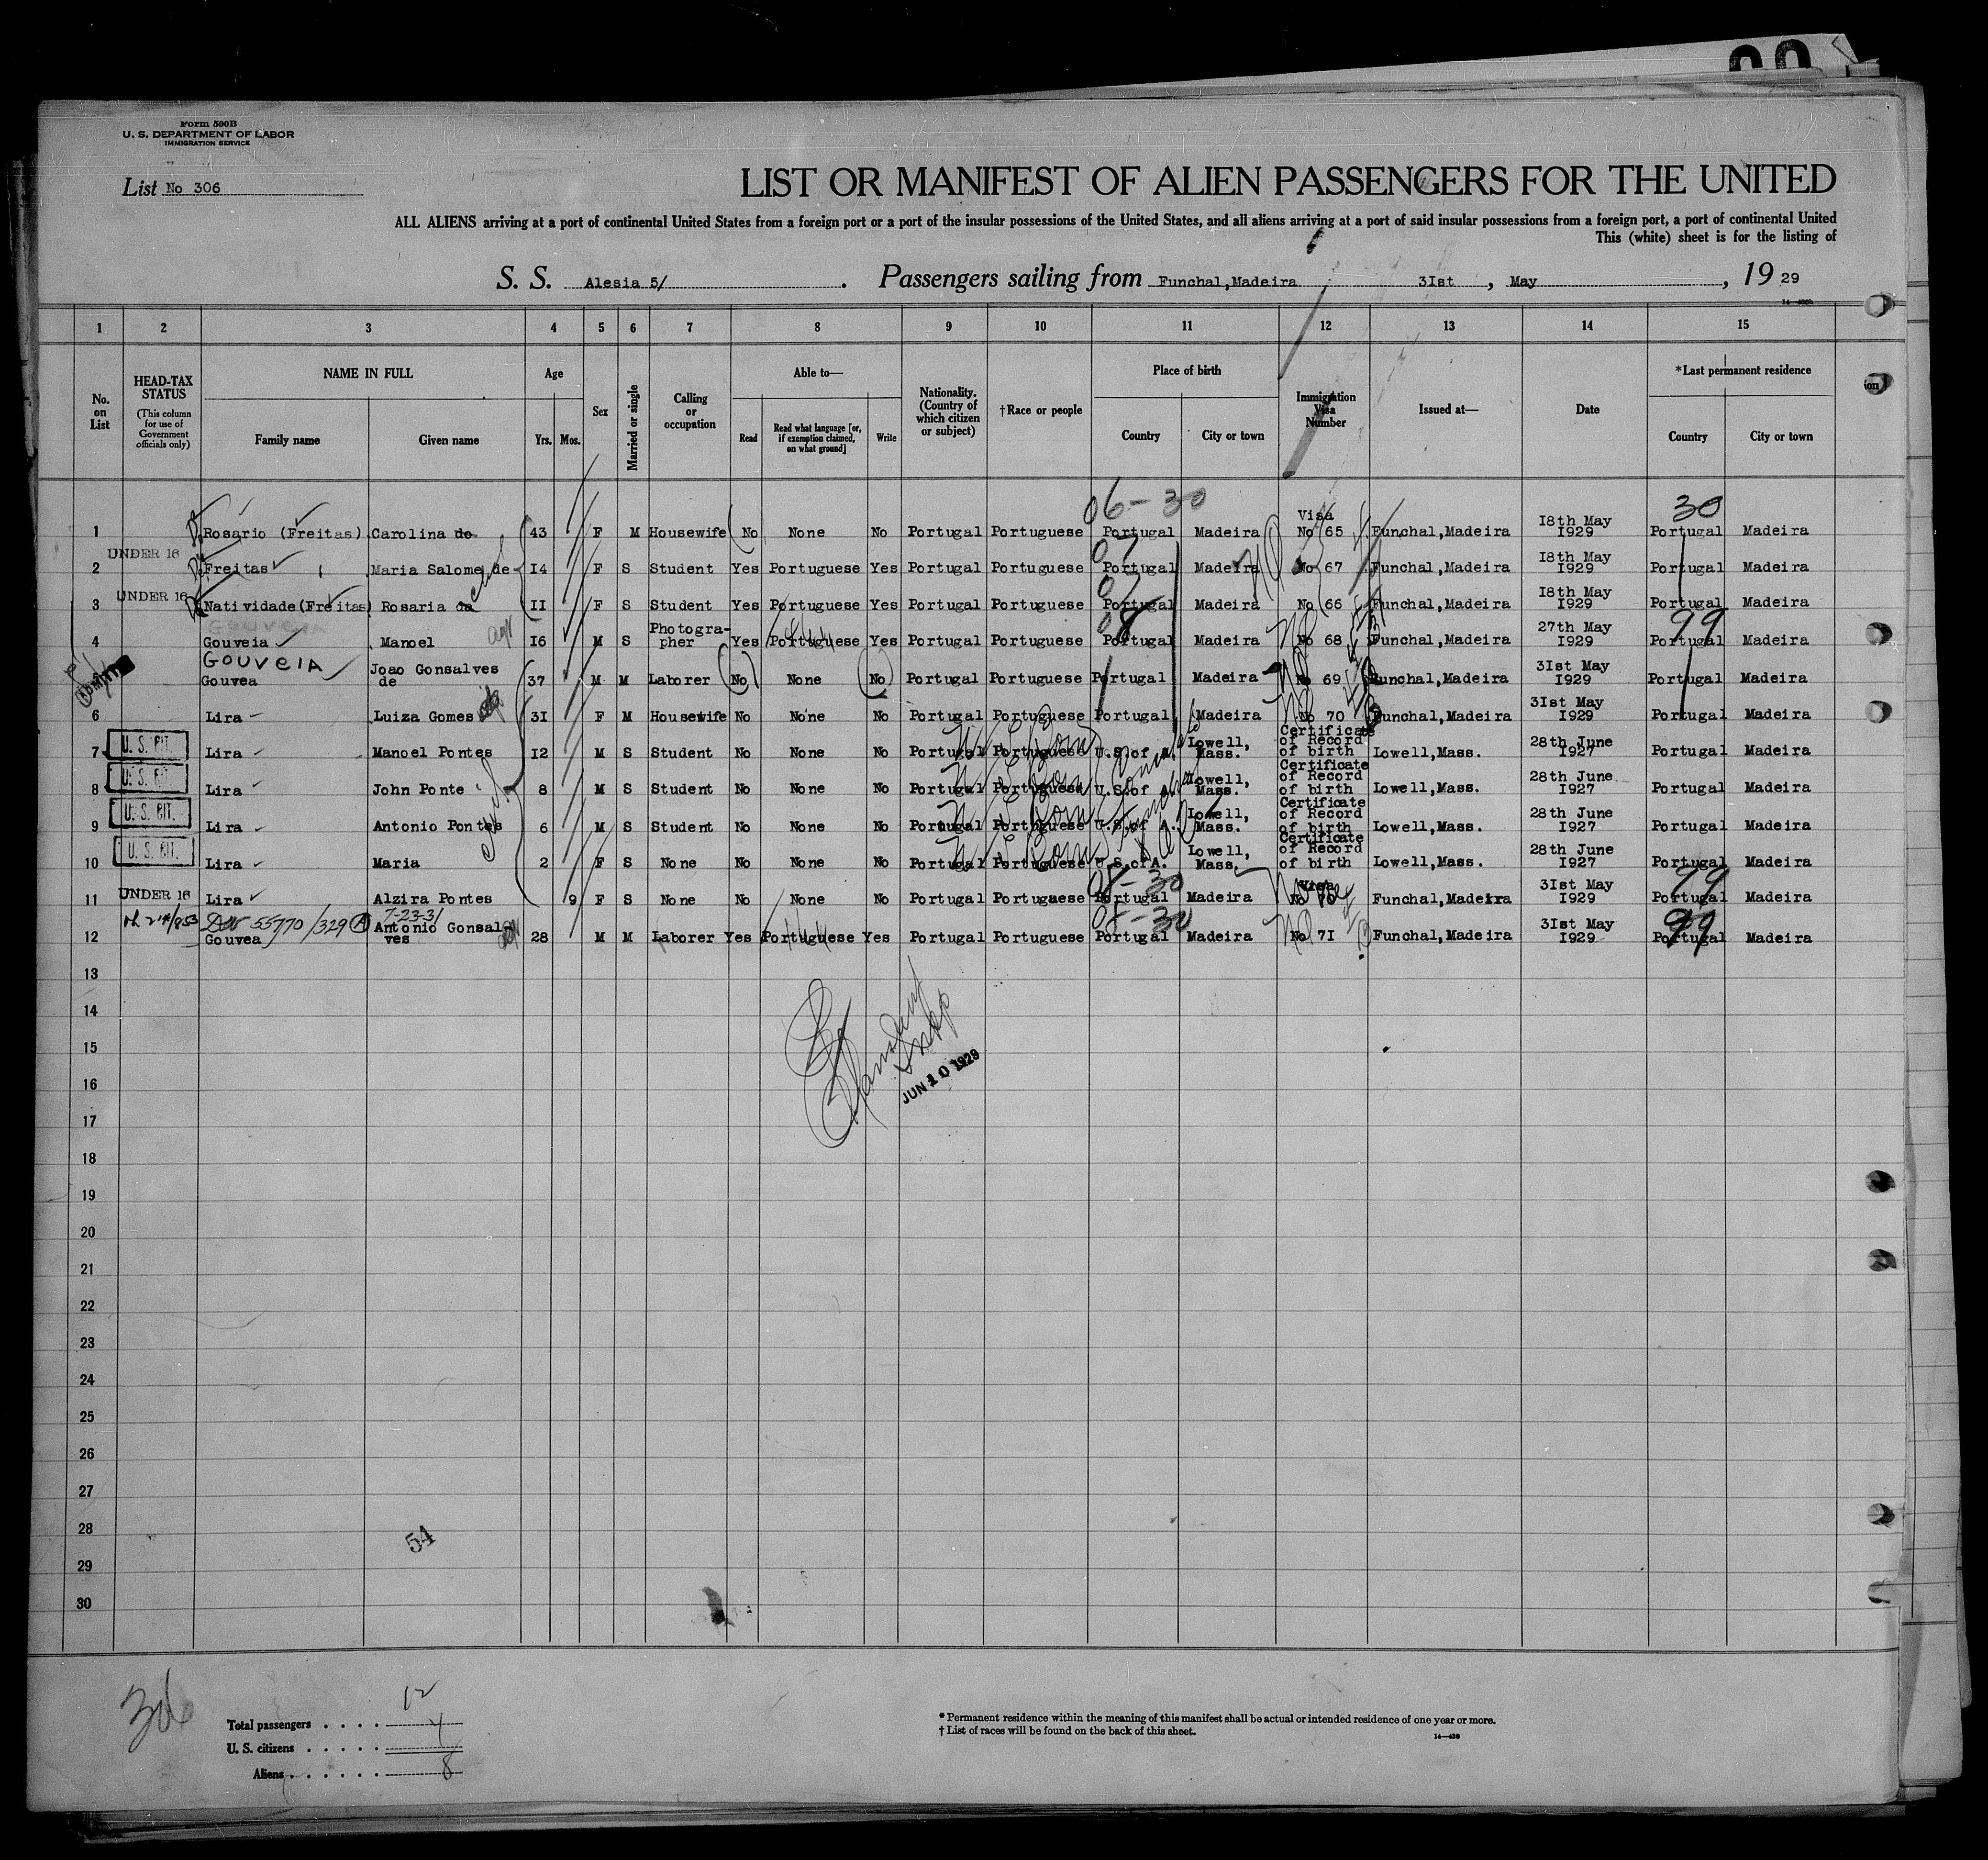 Form 500B
U. S. DEPARTMENT OF LABOR
IMMIGRATION SERVICE
List No 306
LIST OR MANIFEST OF ALIEN PASSENGERS FOR THE UNITED
ALL ALIENS arriving at a port of continental United States from a foreign port or a port of the insular possessions of the United States, and all aliens arriving at a port of said insular possessions from a foreign port, a port of continental United
This (white) sheet is for the listing of
S. S. Alesia 5/ . Passengers sailing from Funchal,Madeira , 3Ist , May , 19 29
1 2 3 4 5 6 7 8 9 10 11 12 13 14 15
No. on List
HEAD-TAX STATUS
(This column for use of Government officials only)
NAME IN FULL
Family name Given name
Age
Yrs. Mos.
Sex
Married or single
Calling or occupation
Able to—
Read
Read what language [or, if exemption claimed, on what ground]
Write
Nationality. (Country of which citizen or subject)
†Race or people
Place of birth
Country City or town
Immigration Visa Number
Issued at—
Date
*Last permanent residence
Country City or town
06-30 30
1 Rosario (Freitas) Carolina de 43 F M Housewife No None No Portugal Portuguese Portugal Madeira Visa No 65 Funchal,Madeira I8th May I929 Portugal Madeira
UNDER 16
2 Freitas Maria Salome de I4 F S Student Yes Portuguese Yes Portugal Portuguese Portugal Madeira No 67 Funchal,Madeira I8th May I929 Portugal Madeira
UNDER 16
3 Natividade(Freitas) Rosaria da II F S Student Yes Portuguese Yes Portugal Portuguese Portugal Madeira No 66 Funchal,Madeira I8th May I929 Portugal Madeira
4 Gouveia Manoel I6 M S Photogra-pher Yes Portuguese Yes Portugal Portuguese Portugal Madeira No 68 Funchal,Madeira 27th May I929 Portugal Madeira
99
GOUVEIA
Gouvea Joao Gonsalves de 37 M M Laborer No None No Portugal Portuguese Portugal Madeira No 69 Funchal,Madeira 3Ist May I929 Portugal Madeira
6 Lira Luiza Gomes 3I F M Housewife No None No Portugal Portuguese Portugal Madeira No 70 Funchal,Madeira 3Ist May I929 Portugal Madeira
U. S. CIT.
7 Lira Manoel Pontes I2 M S Student No None No Portugal Portuguese U.S.of A. Lowell, Mass. Certificate of Record of birth Lowell,Mass. 28th June I927 Portugal Madeira
U. S. CIT.
8 Lira John Ponte 8 M S Student No None No Portugal Portuguese U.S.of A. Lowell, Mass. Certificate of Record of birth Lowell,Mass. 28th June I927 Portugal Madeira
U. S. CIT.
9 Lira Antonio Pontes 6 M S Student No None No Portugal Portuguese U.S.of A. Lowell, Mass. Certificate of Record of birth Lowell,Mass. 28th June I927 Portugal Madeira
U. S. CIT.
10 Lira Maria 2 F S None No None No Portugal Portuguese U.S.of A. Lowell, Mass. Certificate of Record of birth Lowell,Mass. 28th June I927 Portugal Madeira
UNDER 16
08-30
11 Lira Alzira Pontes 9 F S None No None No Portugal Portuguese Portugal Madeira Visa No 70 Funchal,Madeira 3Ist May I929 Portugal Madeira
55770/329 7-23-31
08-30 99
12 Gouvea Antonio Gonsal-ves 28 M M Laborer Yes Portuguese Yes Portugal Portuguese Portugal Madeira No 7I Funchal,Madeira 3Ist May I929 Portugal Madeira
13
14
15
JUN 10 1929
16
17
18
19
20
21
22
23
24
25
26
27
28
54
29
30
306
12
Total passengers . . . . 4
U. S. citizens . . . . .
Aliens . . . . . . 8
* Permanent residence within the meaning of this manifest shall be actual or intended residence of one year or more.
† List of races will be found on the back of this sheet.
14—436